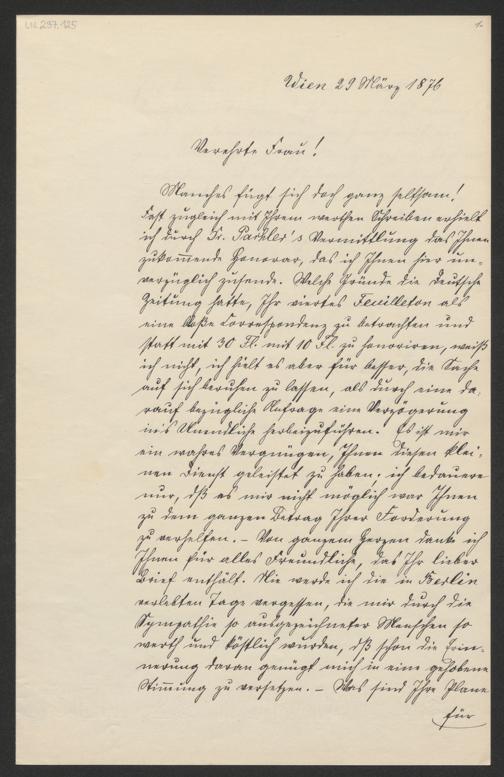 LN 297.125
1.
Wien 29 März 1876
Verehrte Frau!
Manches fügt sich doch ganz seltsam!
Fast zugleich mit Ihrem werthen Schreiben erhielt
ich durch Fr. Vermittlung das Ihnen
zukomende Honorar, das ich Ihnen hier un-
verzüglich zusende. Welche Gründe die Deutsche
Zeitung hatte, Ihr viertes Feuilleton als
eine bloße Correspondenz zu betrachten und
statt mit 30 Fl. mit 10 Fl. zu honoriren, weiß
ich nicht, ich hielt es aber für besser, die Sache
auf sich beruhen zu lassen, als durch eine da-
rauf bezügliche Anfrage eine Verzögerung
ins Unendliche herbeizuführen. Es ist mir
ein wahres Vergnügen, Ihnen diesen klei-
nen Dienst geleistet zu haben; ich bedauere
nur, dß es mir nicht möglich war Ihnen
zu dem ganzen Betrag Ihrer Forderung
zu verhelfen. – Von ganzem Herzen danke ich
Ihnen für alles Freundliche, das Ihr lieber
Brief enthält. Nie werde ich die in Berlin
verlebten Tage vergessen, die mir durch die
Sympathie so ausgezeichneter Menschen so
werth und köstlich wurden, dß schon die Erin-
nerung daran genügt mich in eine gehobene
Stimung zu versetzen. – Was sind Ihre Plane
für